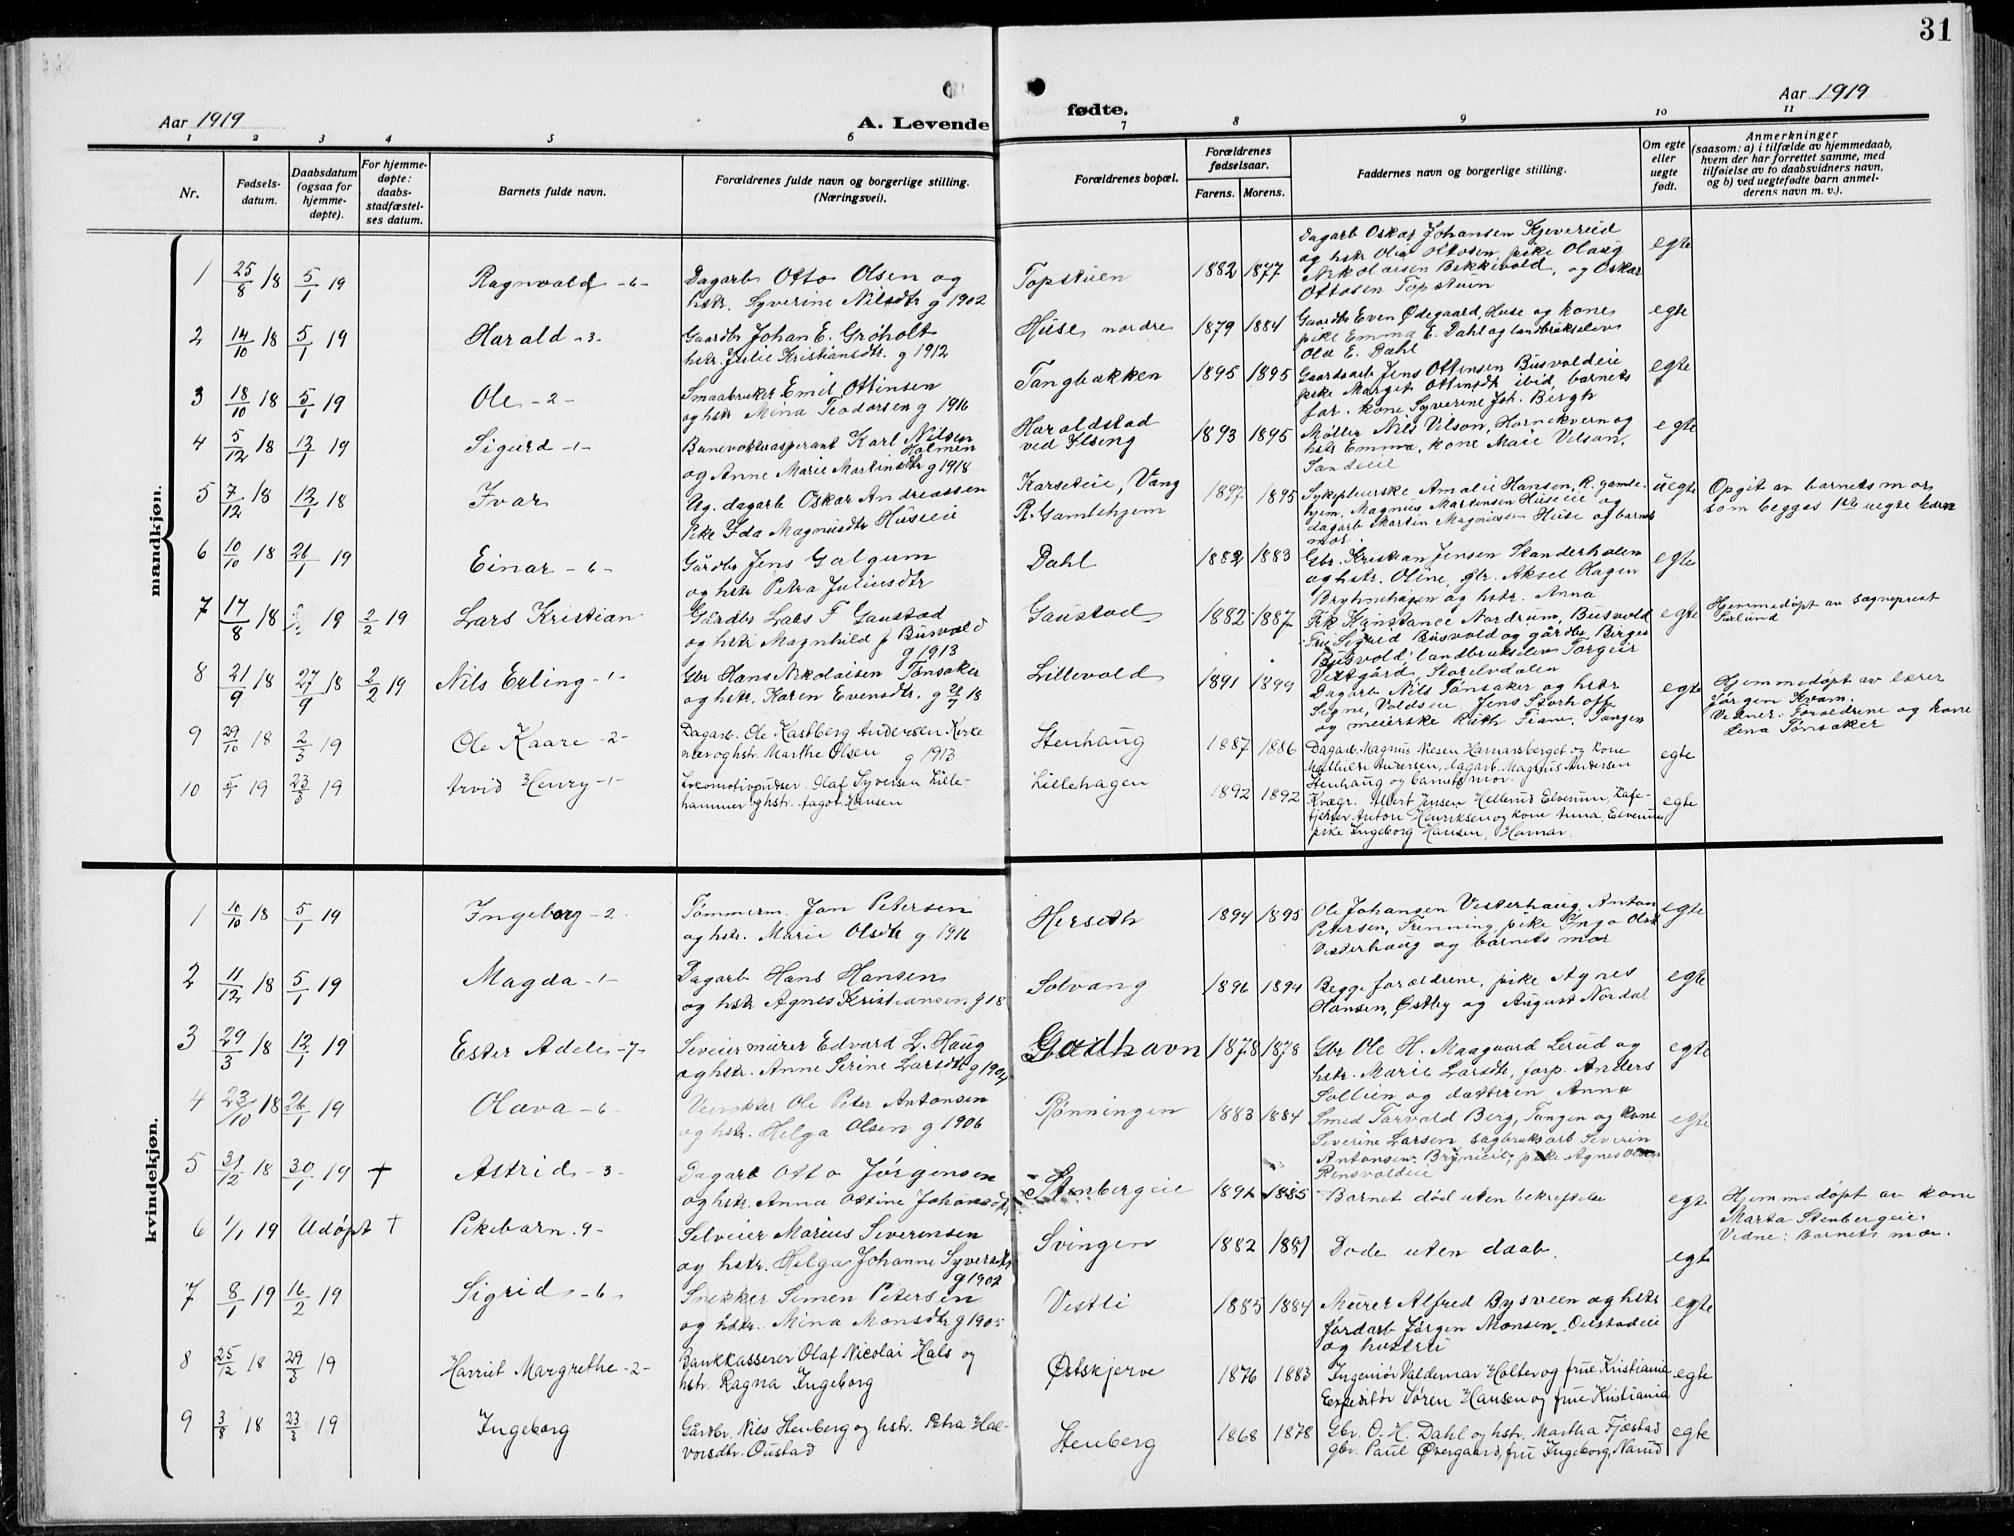 31
Aar 1919
A. Levende fødte.
Aar 1919
1 2 3 4 5 6 7 8 9 10 11
Nr.
Fødsels-
datum.
Daabsdatum
(ogsaa for
hjemme-
døpte).
For hjemme-
døpte:
daabs-
stadfæstel-
ses datum.
Barnets fulde navn.
Forældrenes fulde navn og borgerlige stilling.
(Næringsvei).
Forældrenes bopæl.
Forældrenes
fødselsaar.
Farens. Morens.
Faddernes navn og borgerlige stilling.
Om egte
eller
uegte
født.
Anmerkninger
(saasom: a) i tilfælde av hjemmedaab,
hvem der har forrettet samme, med
tilføielse av to daabsvidners navn,
og b) ved uegtefødte barn anmel-
derens navn m. v.).
mandkjøn.
1 25/8 18 5/1 19 Ragnvald -6-
Dagarb Otto Olsen og
hstr. Syverine Nilsdtr g 1902
Topstuen 1882 1877
Dagarb Oskar Johansen Kjevereid
og hstr Olia Ottosen, pike Olaug
Nikolaisen Bekkevold, og Oskar
Ottosen Topstuen
egte
2 14/10 18 5/1 19 Harald -3-
Gaardbr Johan E. Grøholt
hstr. Julie Kristiansdtr. g 1912
Huse nordre 1879 1884
Gaardbr Even Ødegaard, Huse og kone,
pike Emma E. Dahl og landbrukselev
Ole E. Dahl
egte
3 18/10 18 5/1 19 Ole -2-
Smaabruker Emil Ottinsen
og hstr Mina Teodorsen g 1916
Tangbakken 1895 1895
Gaardsarb Jens Ottinsen Busvoldeie
pike Margit Ottinsdtr ibid, barnets
far. kone Syverine Joh. Bergh
egte
4 5/12 18 12/1 19 Sigurd -1-
Banevoktaspirant Karl Nilsen
Holmen
og Anne Marie Martinsdtr g 1918
Haraldstad
ved Ilseng
1893 1895
Møller Nils Vilson, Hornekvern og
hstr Emma, kone Maie Vilson,
Sandeie
egte
5 7/12 18 12/1 18 Ivar
Ug. dagarb Oskar Andreassen
Pke Ida Magnusdtr Huseeie
Karseteie, Vang
R. Gamlehjem
1897 1895
Sykepleierske Amalie Hansen, R. gamle-
hjem, Magnus Martinsen Huseeie og
dagarb Martin Magnussen Huse og barnets
mor.
uegte
Opgit av barnets mor
som begges 1ste uegte barn
6 10/10 18 26/1 19 Einar -6-
Gårdbr Jens Galgum
og hstr Petra Juliusdtr
Dahl 1882 1883
Gbr. Kristian Jensen Skanderholen
og hstr. Oline, gbr. Aksel Hagen
Bryhnihagen og hstr. Anna
egte
7 17/8 18 19 2/2 19 Lars Kristian
Gårdbr Lars T Gaustad
og hstr Magnhild f Busvold
g 1913
Gaustad 1882 1887
Frk Konstance Nordrum, Busvold
Frü Sigrid Busvold og gårdbr. Birger
Busvold, landbrukselev Torgeir
Vestgård, Storelvdalen
egte
Hjemmedøpt av sogneprest
8 21/9 18 27/9 18 2/2 19 Nils Erling -1-
Gbr Hans Nikolaisen Tønsaker
og hstr. Karen Evensdtr. g 21/7 18
Lillevold 1891 1899
Dagarb Nils Tønsaker og hstr
Signe, Voldseie, Jens Storhoff
og meierske Ruth Fram, Tangen
egte
Hjemmedøpt av lærer
Jørgen Kvam.
Vidner: Foreldrene og kone
Lina Tønsaker
9 29/10 18 2/3 19 Ole Kaare -2-
Dagarb. Ole Kastberg Andersen Kirke
nær og hstr. Marthe Olsen g 1913
Stenhaug 1887 1886
Dagarb Magnus Nilsen Hamarsberget og kone
Mathilde Andersen, dagarb. Magnus Andersen
Stenhaug og barnets mor.
egte
10 5/1 19 23/3 19 Arvid Henry -1-
Lokomotivpudser Olaf Syversen Lille-
hammer og hstr. Hansen
Lillehagen 1892 1892
Kvægr. Albert Jensen Hellerud Elverum, Kafe-
Anton Henriksen og kone Anna, Elverum
pike Ingeborg Hansen, Hamar.
egte
kvindekjøn.
1 10/10 18 5/1 19 Ingeborg -2-
Tømmerm. Jon Petersen
og hstr. Marie Olsdtr g. 1916
Herseth 1894 1895
Ole Johansen Vesterhaug, Anton
Petersen, Frenning, pike Inga Olsdtr
Vesterhaug og barnets mor
egte
2 11/12 18 5/1 19 Magda -1-
Dagarb Hans Hansen
og hstr Agnes Kristiansen, g 18
Solvang 1896 1894
Begge forældrene, pike Agnes
Hansen, Østby og August Nordal
egte
3 29/3 18 12/1 19 Ester Adele -7-
Sveier murer Edvard L. Haug
og hstr. Anne Serine Larsdtr g 1904
Godhavn 1878 1878
Gbr Ole H. Maagaard Lerud og
hstr. Marie Larsdtr, forp. Anders
Sollien og datteren Anna
egte
4 23/10 18 26/1 19 Olava -6-
Veivokter Ole Peter Antonsen
og hstr. Helga Olsen g 1906
Rønningen 1883 1884
Smed Torvald Berg, Tangen og kone
Severine Larsen, sagbruksarb Severin
Antonsen Bryneie, pike Agnes Olsen
Rensvoldeie
egte
5 31/12 18 30/1 19 + Astrid -3-
Dagarb Otto Jørgensen
og hstr. Anna Ottine Johansdtr
Stenbergeie 1891 1885
Barnet død uten bekreftelse
egte
Hjemmedøpt av kone
Marta Stenbergeie.
Vidne: Barnets mor.
6 1/1 19 Udøpt + Pikebarn -9-
Selveier Marius Severensen
og hstr. Helga Johanne Syversdtr
g 1902
Svingen 1882 1881
Døde uten daab.
egte
7 8/1 19 16/2 19 Sigrid -6-
Snekker Simen Petersen
og hstr. Mina Monsdtr g 1905
Vestli 1885 1884
Murer Alfred Bysveen og hstr
Jordarb Jørgen Monsen, Oustadeie
og hustru
egte
8 25/12 18 29/3 19 Harriet Margrethe -2-
Bankkasserer Olaf Nicolai Hals og
hstr. Ragna Ingeborg
Østskjerve 1876 1883
Ingeniør Valdemar Holter og frue Kristiania
Expeditør Søren Hansen og frue Kristiania
egte
9 3/8 18 23/3 19 Ingeborg
Gårdbr. Nils Stenberg og hstr. Petra Hal-
vorsdtr. Oustad
Stenberg 1868 1878
Gbr. O. H. Dahl og hstr. Martha Fjæstad
gbr. Paul Øvergaard, frue Ingeborg, Narud
egte